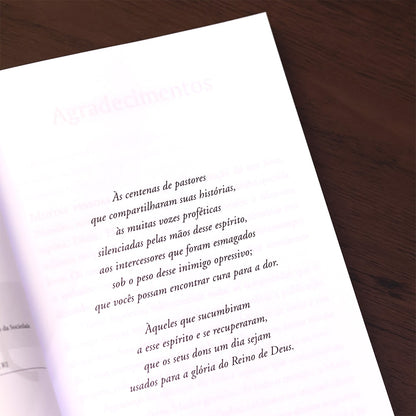 Agradecimentos
Às centenas de pastores
que compartilharam suas histórias,
às muitas vozes proféticas
silenciadas pelas mãos desse espírito,
aos intercessores que foram esmagados
sob o peso desse inimigo opressivo;
que vocês possam encontrar cura para a dor.
Àqueles que sucumbiram
a esse espírito e se recuperaram,
que os seus dons um dia sejam
usados para a glória do Reino de Deus.
da Sociedade
RJ